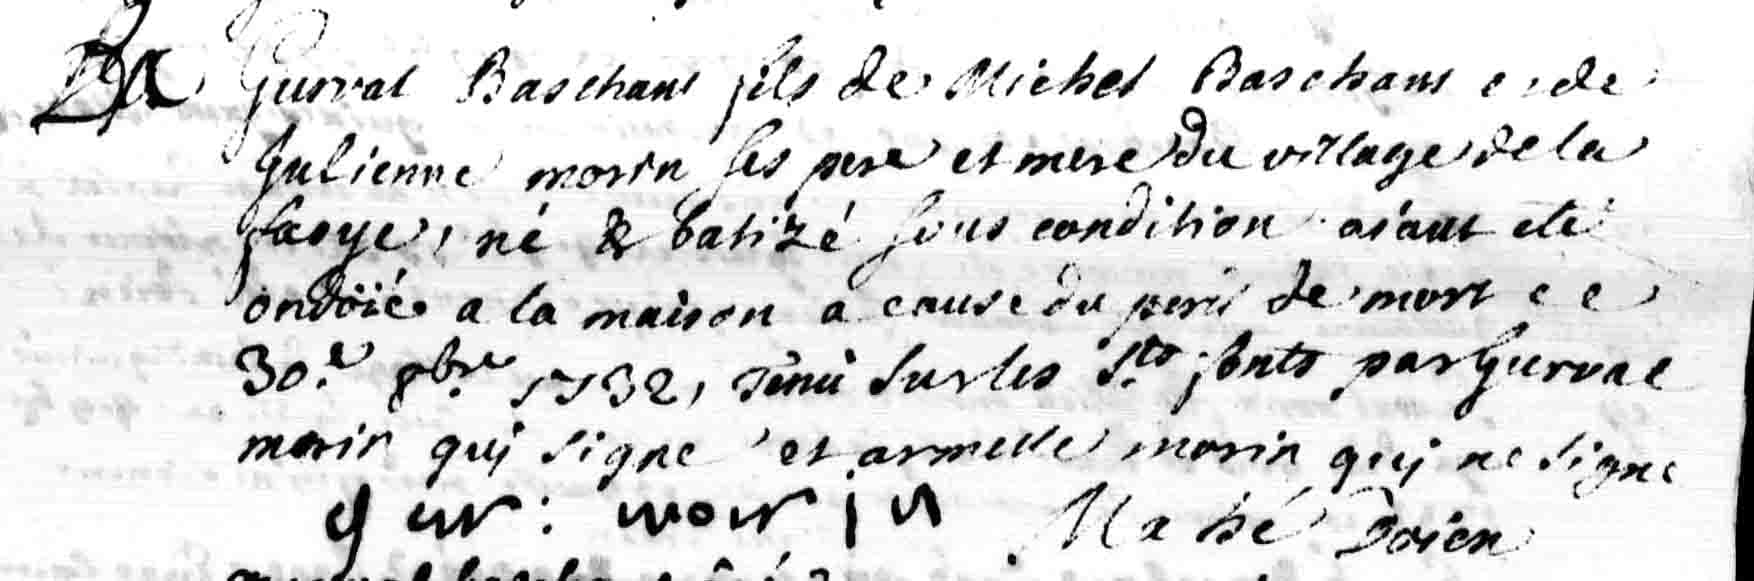 Ba Gurval Baschant fils de Michel Baschant & de
Julienne morin ses pere et mere du village de la
né & batizé sous condition aiant eté
ondoié a la maison a cause du peril de mort ce
30.e 8bre 1732, Tenu sur les S.ts fonts par Gurval
morin qui signe et armelle morin qui ne signe
gur : morin Mahé Doien